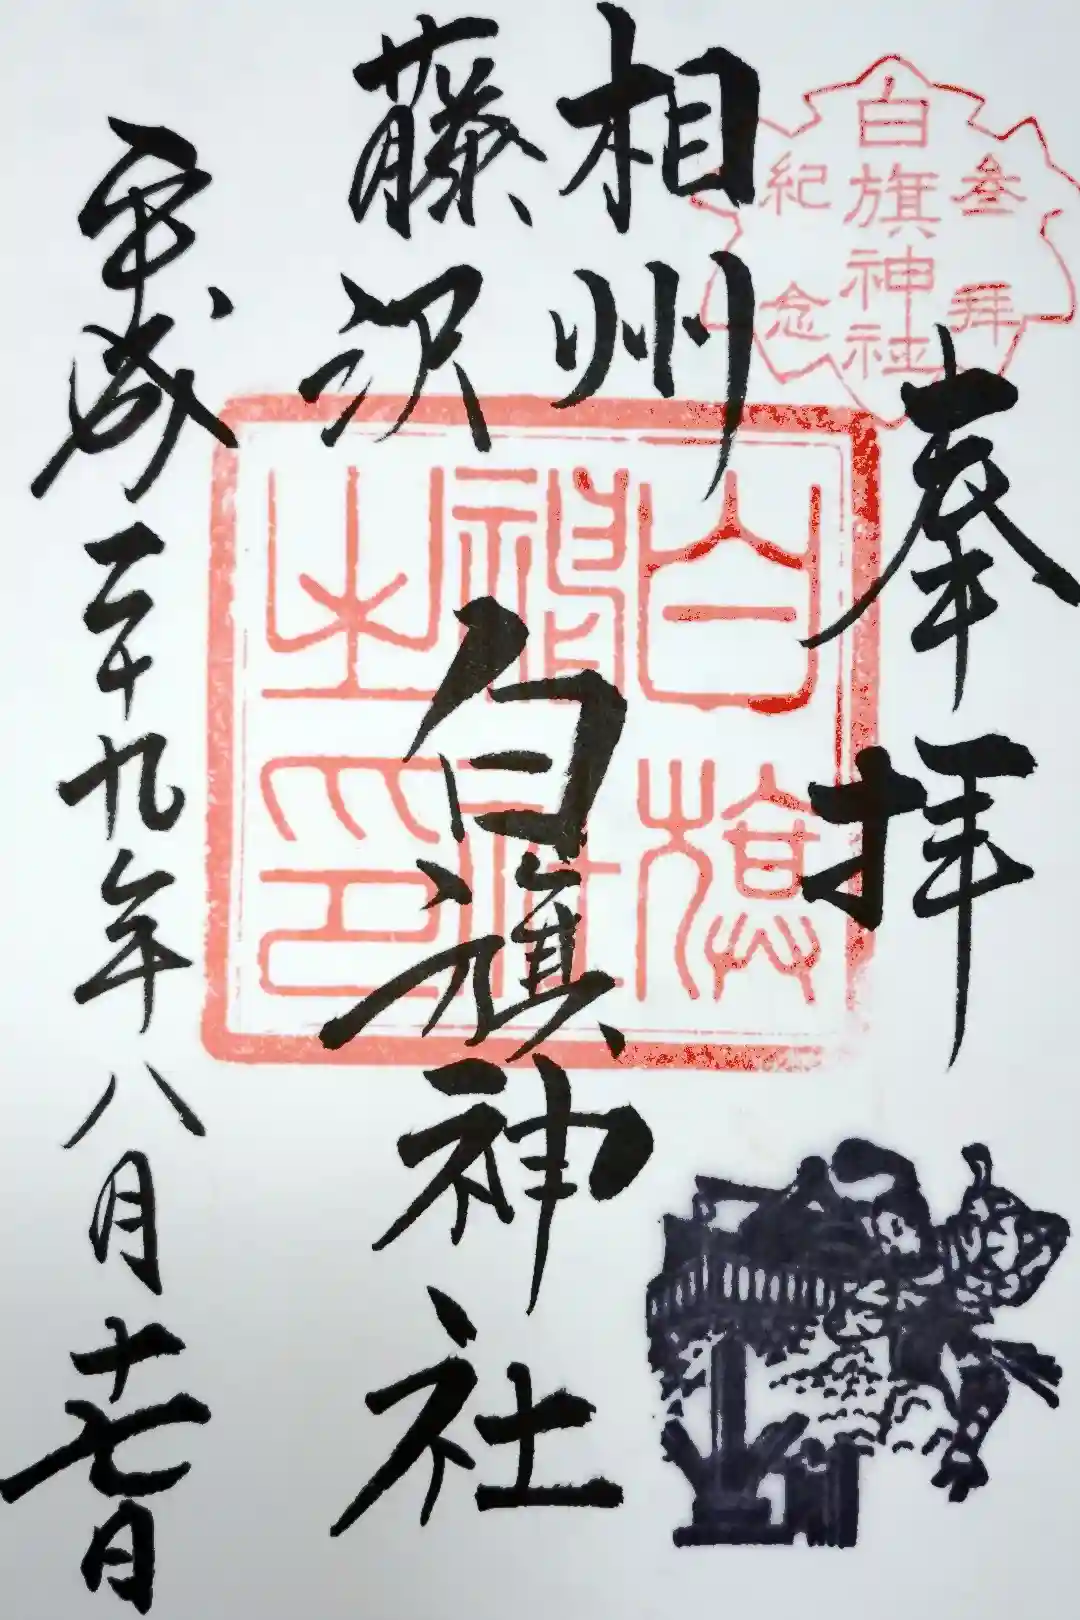 奉拝
相州
藤沢
白旗神社
平成二十九年八月十七日
参拝
白旗神社
紀念
白旗
神社
之印